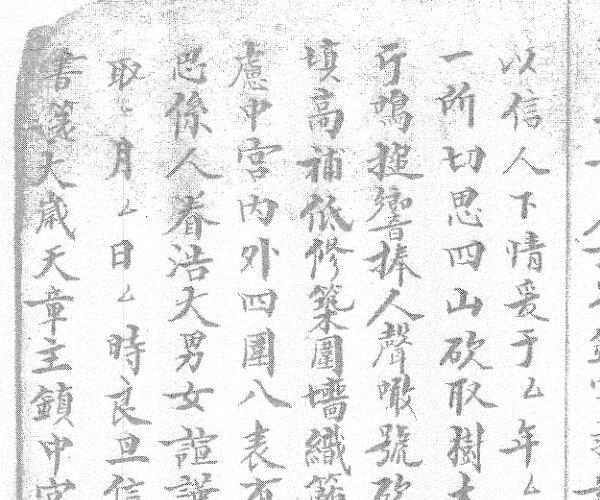 以信人下情爰于厶年厶
一所切思四山砍取樹木
斤鳴搥響捧人聲噉號砍
填高補低修築圍墻織籬
慮中宮內外四圍八表有
思係人眷浩大男女諠譁
取厶月厶日厶時良旦信
書籙大歲天章主鎮中宮